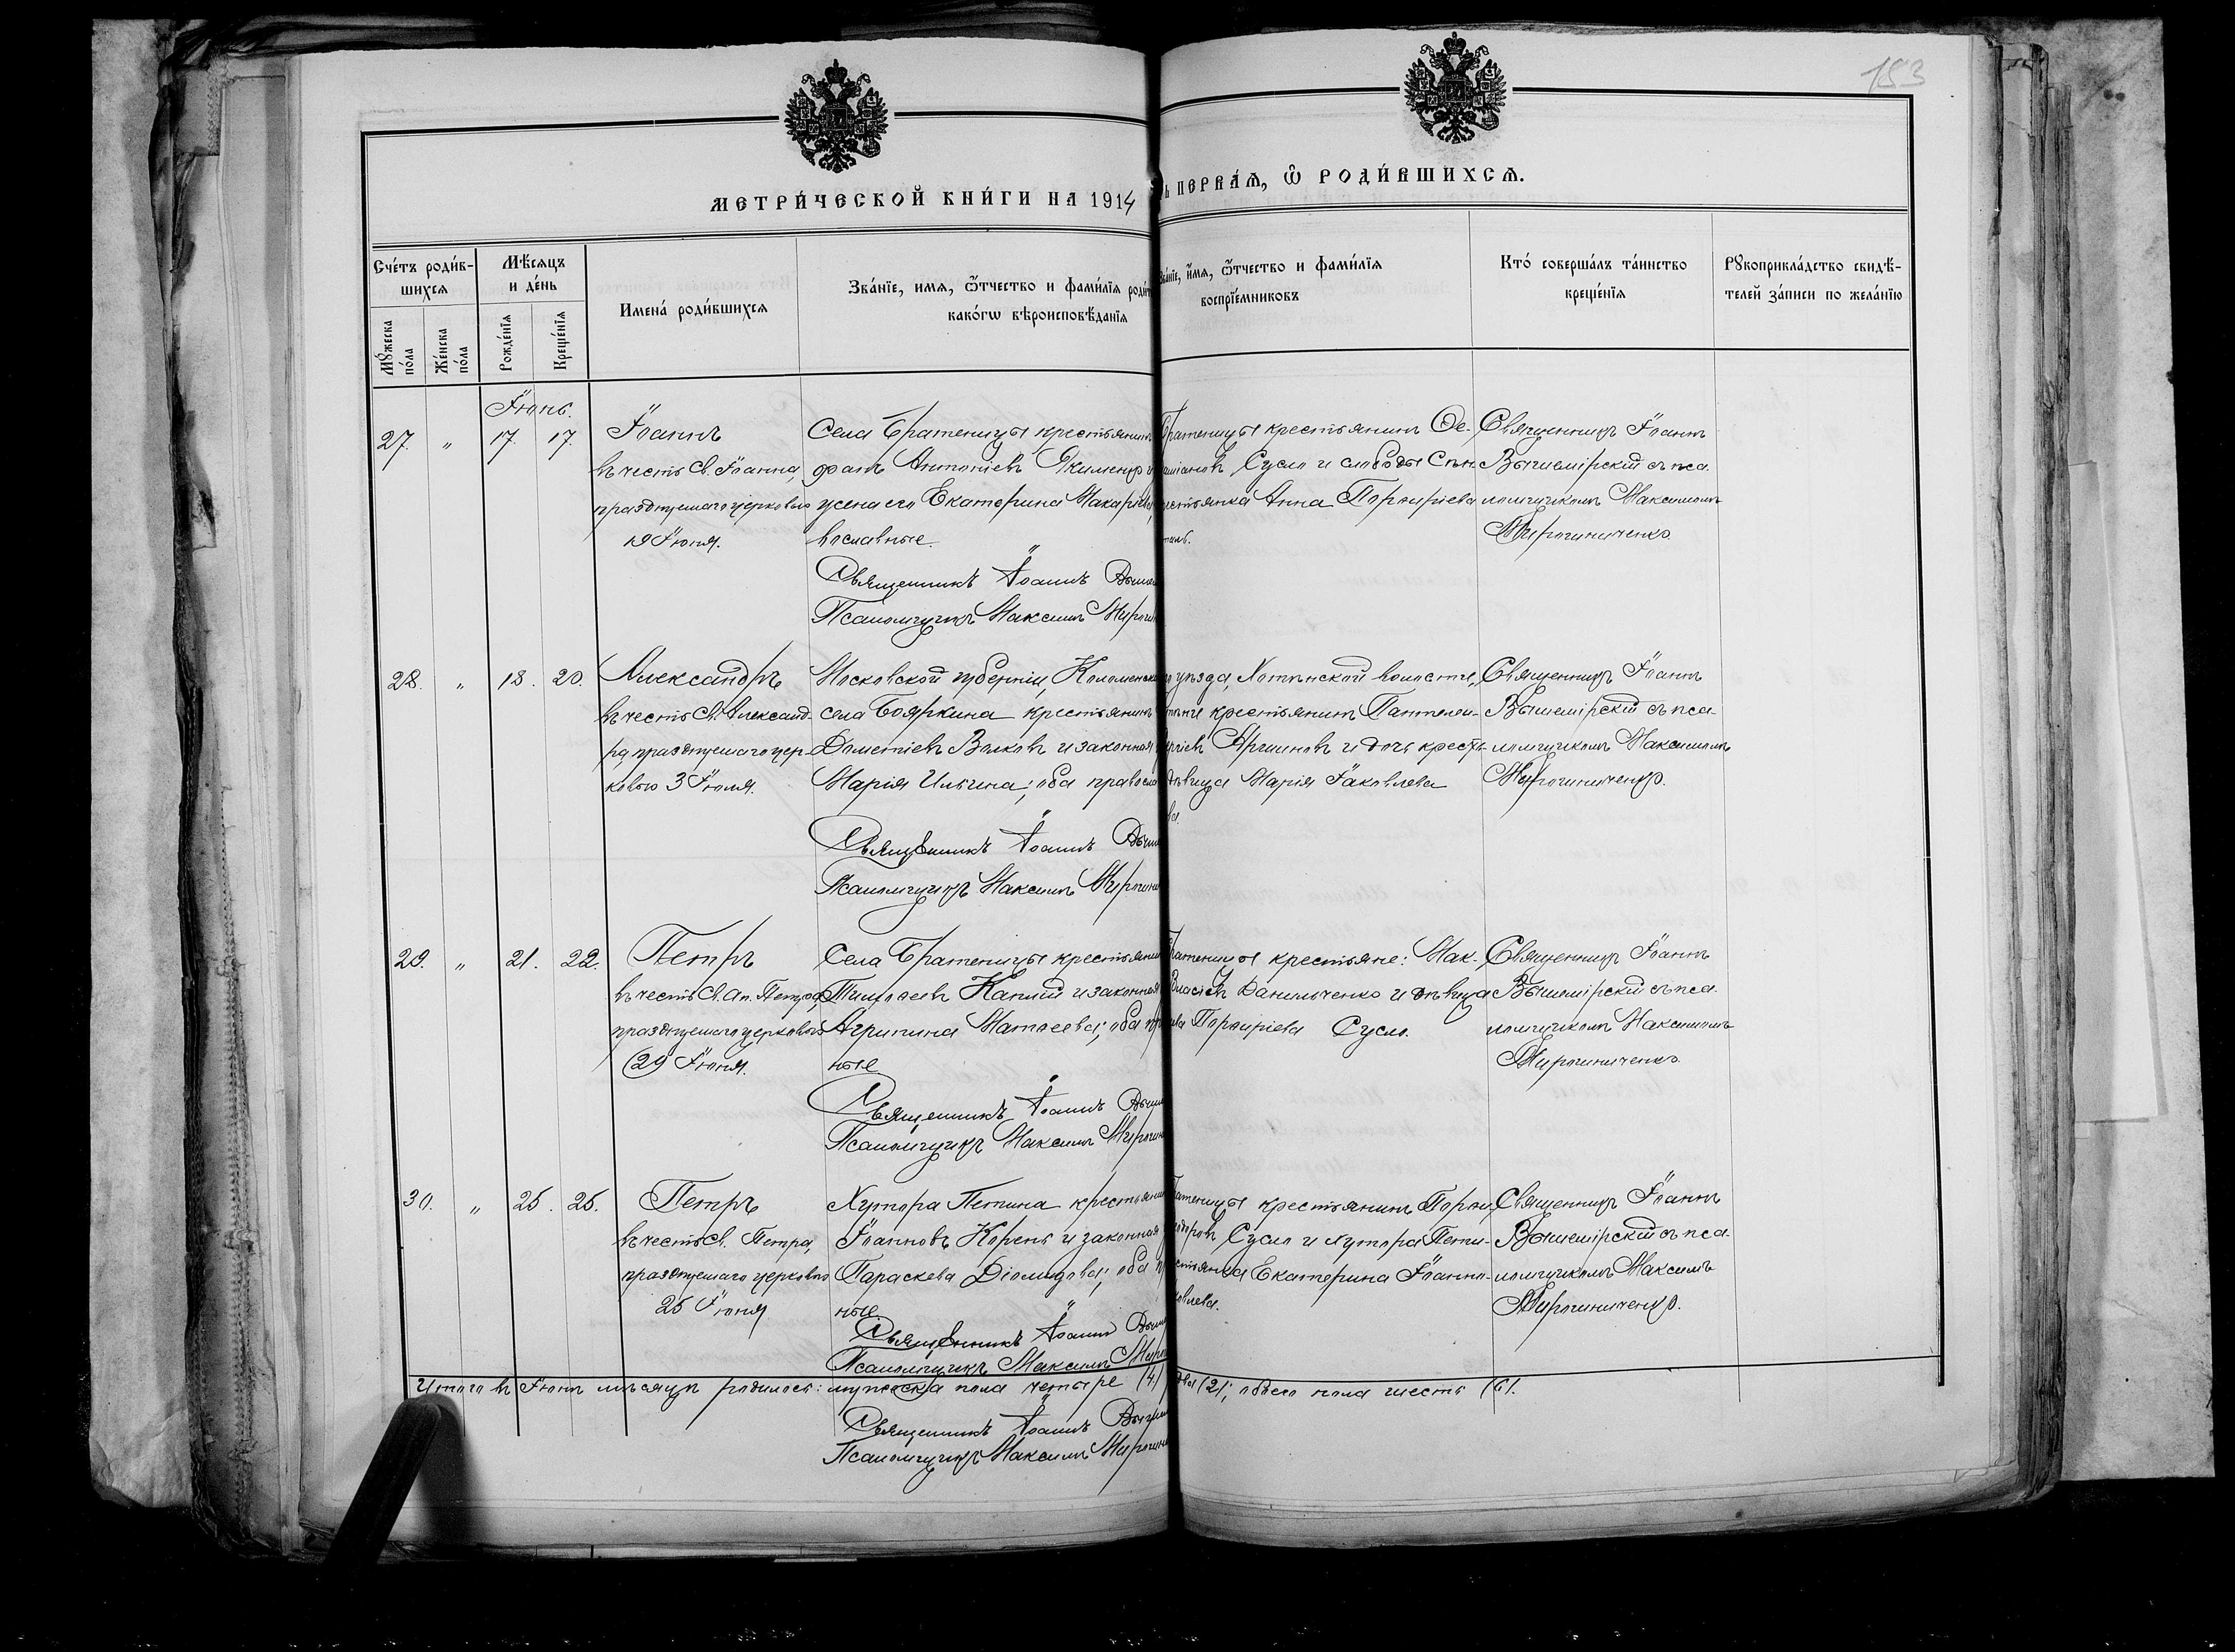 153
МЕТРИ́ЧЕСКОЙ КНИ́ГИ НА 1914
ПЕРВА́Я, Ѡ҆ РОДИ́ВШИХСЯ.
Сче́тъ роди́в-
шихся
Мꙋ́жеска
по́ла
Же́нска
по́ла
Мѣ́сяцъ
и де́нь
Рожде́нїя
Креще́нїя
Имена́ роди́вшихся
Зва́нїе, имя, ѻ҆́тчество и фами́лїя роди
како́гѡ вѣроисповѣ́данїя
Зва́нїе, и́мя, ѻ҆́тчество и фами́лїя
воспрїе́мниковъ
Кто́ соверша́лъ та́инство
креще́нїя
Рꙋкоприкла́дство свидѣ́-
телей за́писи по жела́нїю
Іюнь.
27. " 17. 17.
Іоаннъ
въ честь св. Іоанна,
празднуемаго церковью
19 Іюня.
Села Братеницы крестьянинъ
Антоніевъ Якименко и
жена его Екатерина Макаріева,
вославные.
Священникъ Іоаннъ
Псаломщикъ Максимъ
Братеницы крестьянинъ Ѳе-
Сусло и слободы
Анна Порфиріева
Священникъ Іоаннъ
Вышемірскій съ пса-
ломщикомъ Максимомъ
Мирошниченко.
28. " 18. 20.
Александръ
въ честь Св. Александ-
ра празднуемаго цер-
ковью 3 Іюля.
Московской губерніи, Коломенска
села Бояркина крестьянинъ
Дометіевъ Волковъ и законная
Марія Ильина; оба правосла
Священникъ Іоаннъ
Псаломщикъ Максимъ
уѣзда, Хотынской волости,
крестьянинъ Пантелеи-
и дочь кресть-
дѣвица Марія Іаковлева
ва.
Священникъ Іоаннъ
Вышемірскій съ пса-
ломщикомъ Максимомъ
Мирошниченко.
29. " 21. 22.
Петръ
въ честь Св. Ап. Петра,
празднуемаго церковью
29 Іюня.
Села Братеницы крестьянин
Тимоѳеевъ Каплій и законная
Агрипина Матѳеева; оба пр
ные
Священникъ Іоаннъ
Псаломщикъ Максимъ
Братеницы крестьяне: Мак-
Власіевъ Данильченко и дѣвица
Порфиріева Сусло.
Священникъ Іоаннъ
Вышемірскій съ пса-
ломщикомъ Максимомъ
Мирошниченко.
30. " 25. 25.
Петръ
въ честь Св. Петра,
празднуемаго церковью
25 Іюня
Хутора Петина крестьянин
Іоанновъ Корень и законная
Параскева Діомидова; оба пр
ные
Священникъ Іоаннъ
Псаломщикъ Максимъ
Братеницы крестьянинъ Порфи-
Сусло и хутора Пети-
Екатерина Іоанно-
Священникъ Іоаннъ
Вышемірскій съ пса-
ломщикомъ Максимъ
Мирошниченко.
Итого въ Іюнѣ мѣсяцѣ родилось: мужеска пола четыре (4)
два (2); обоего пола шесть (6).
Священникъ Іоаннъ
Псаломщикъ Максимъ